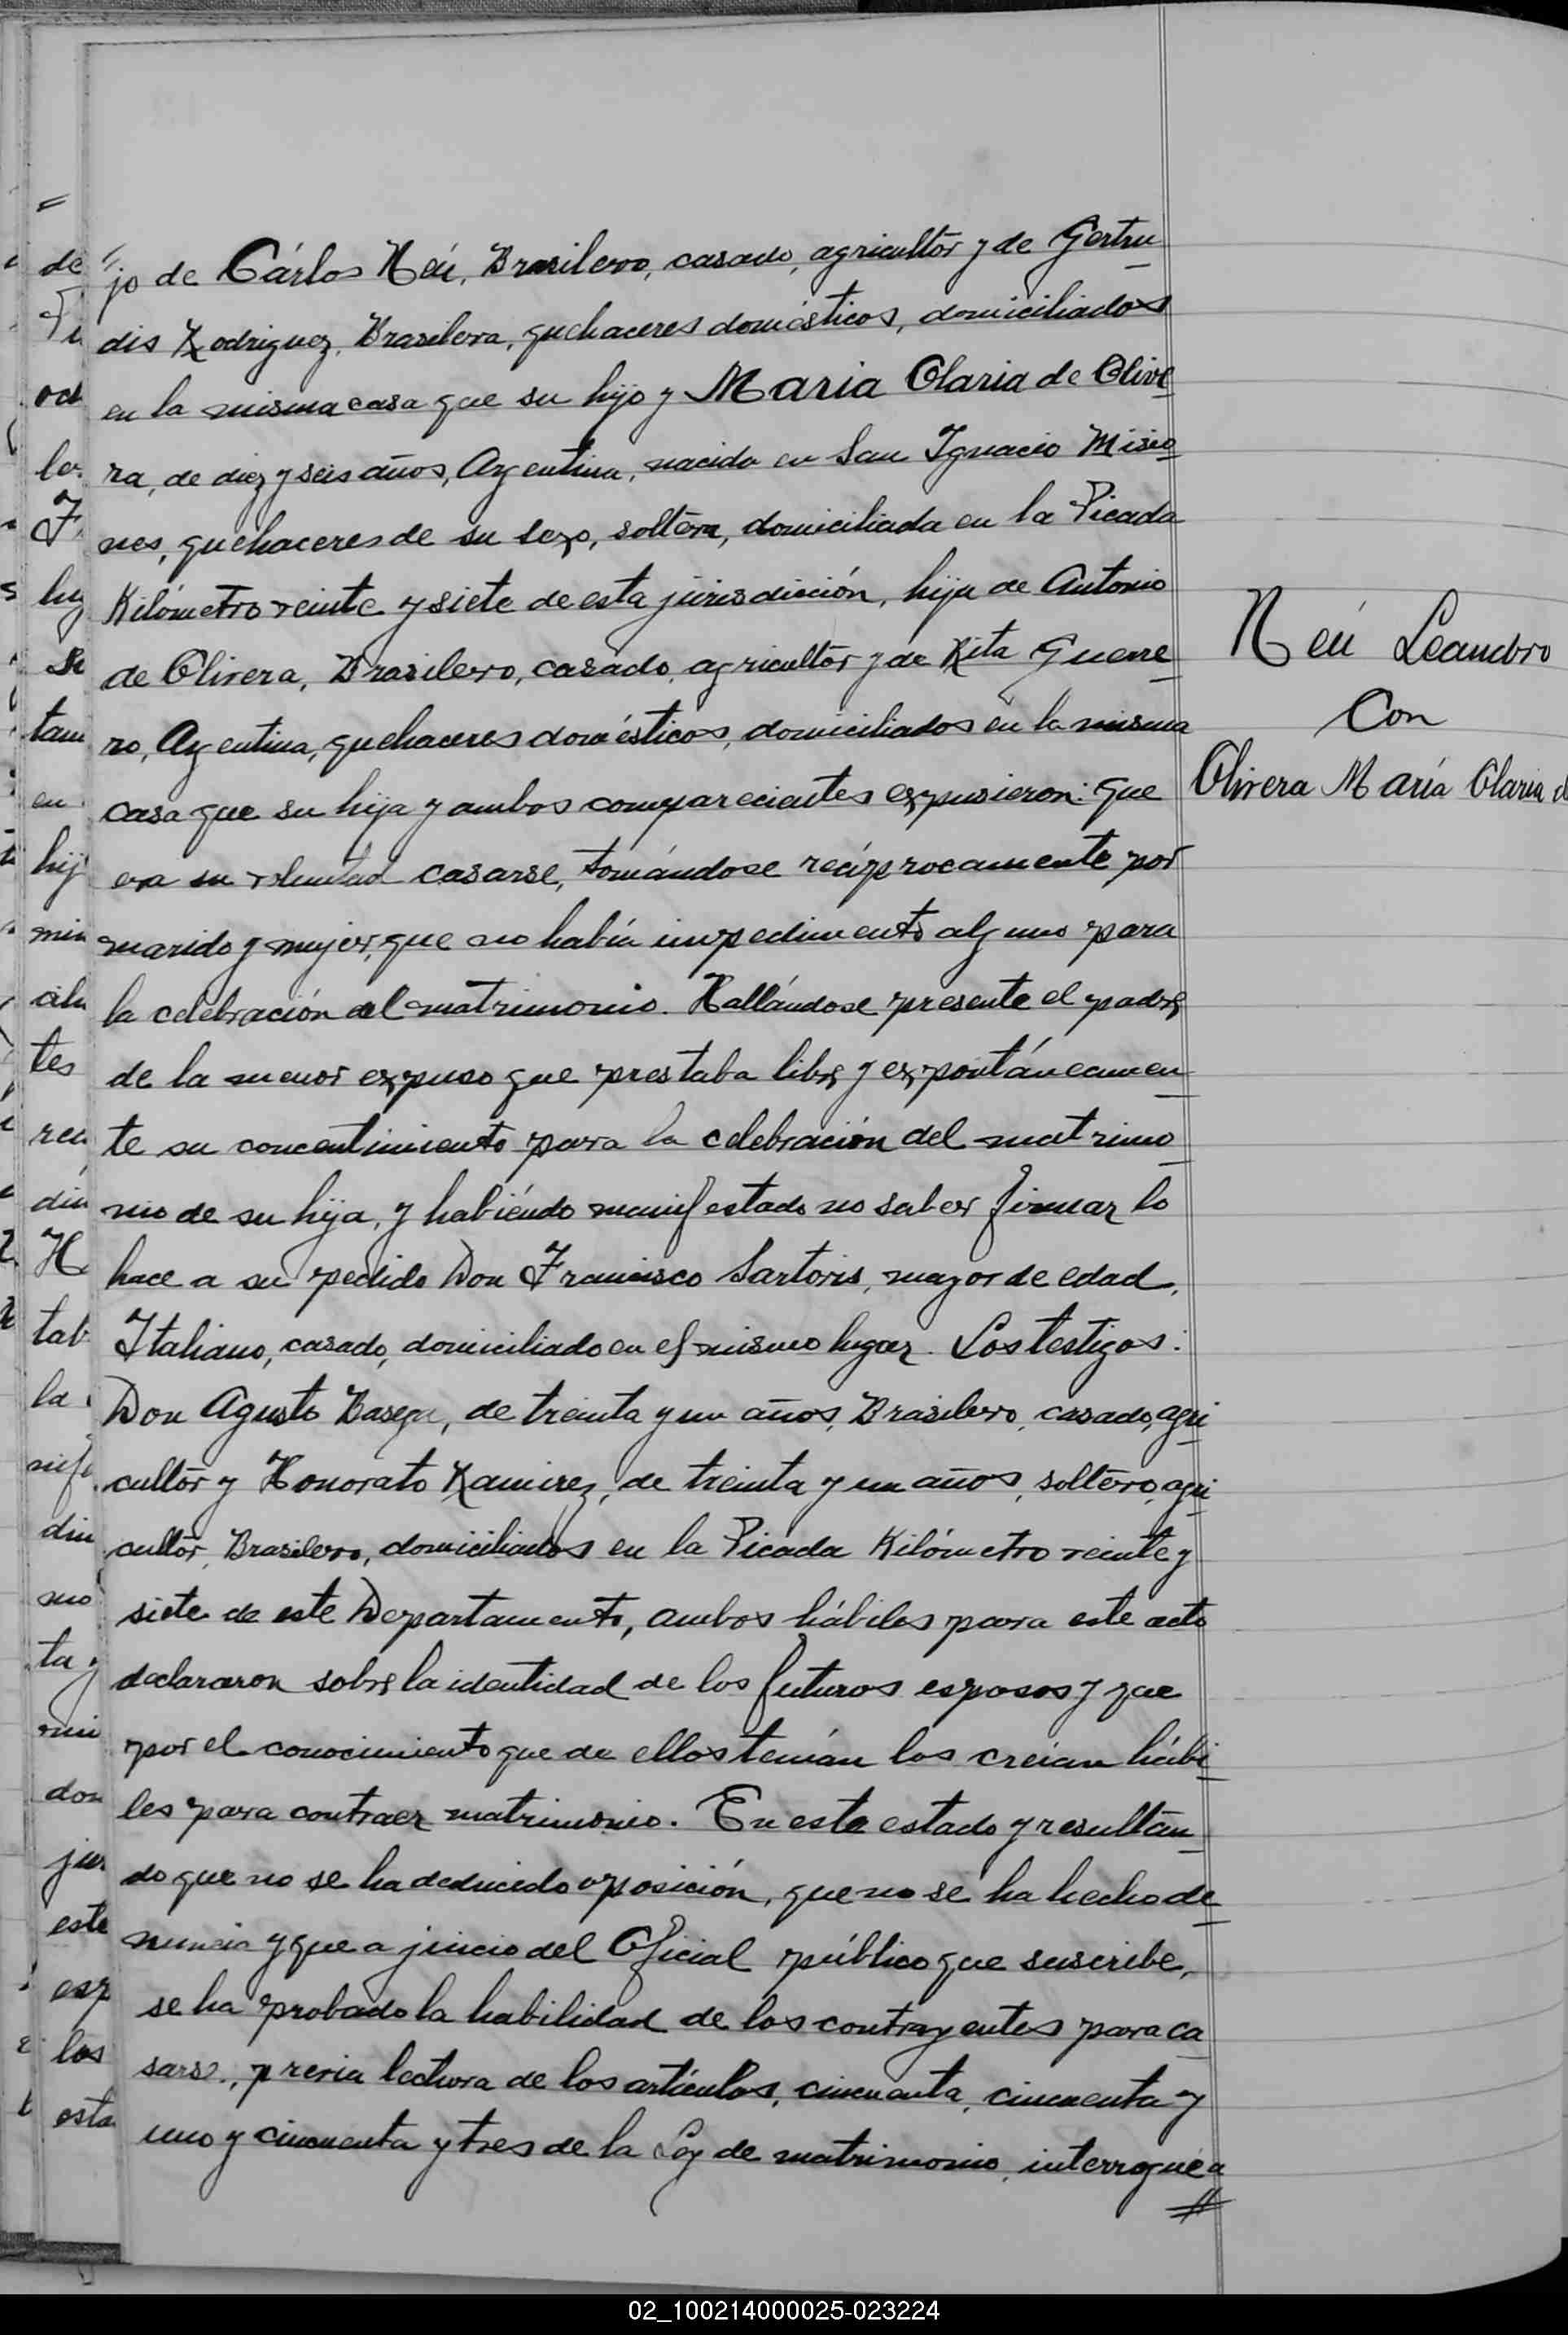 jo de Cárlos Neú, Brasilero, casado, agricultor y de Gertru
dis Rodriguez, Brasilera, quehaceres domésticos, domiciliados
en la misma casa que su hijo y Maria Olaria de Olive
ra, de diez y seis años, Argentina, nacida en San Ignacio Misio
nes, quehaceres de su sexo, soltera, domiciliada en la Picada
Kilómetro veinte y siete de esta jurisdicción, hija de Antonio
de Olivera, Brasilero, casado, agricultor y de Rita Guerre
ro, Argentina, quehaceres domésticos, domiciliados en la misma
casa que su hija y ambos comparecientes expusieron: Que
era su voluntad casarse, tomándose recíprocamente por
marido y mujer, que no había impedimento alguno para
la celebración del matrimonio. Hallándose presente el padre
de la menor expuso que prestaba libre y expontáneamen
te su concentimiento para la celebración del matrimo
nio de su hija, y habiéndo manifestado no saber firmar lo
hace a su pedido Don Francisco Sartoris, mayor de edad,
Italiano, casado, domiciliado en el mismo lugar. Los testigos:
Don Agusto de treinta y un años, Brasilero, casado, agri
cultor y Honorato Ramirez, de treinta y un años, soltero, agri
cultor, Brasilero, domiciliados en la Picada Kilómetro veinte y
siete de este Departamento, ambos hábiles para este acto
declararon sobre la identidad de los futuros esposos y que
por el conocimiento que de ellos tenían los creían hábi
les para contraer matrimonio. En este estado y resultan
do que no se ha deducido oposición, que no se ha hecho de
nuncia y que a juicio del Oficial público que suscribe,
se ha probado la habilidad de los contrayentes para ca
sarse, previa lectura de los artículos, cincuenta, cincuenta y
uno y cincuenta y tres de la Ley de matrimonio, interrogué a
Neú Leandro
Con
Olivera María Olaria d
02_100214000025-023224